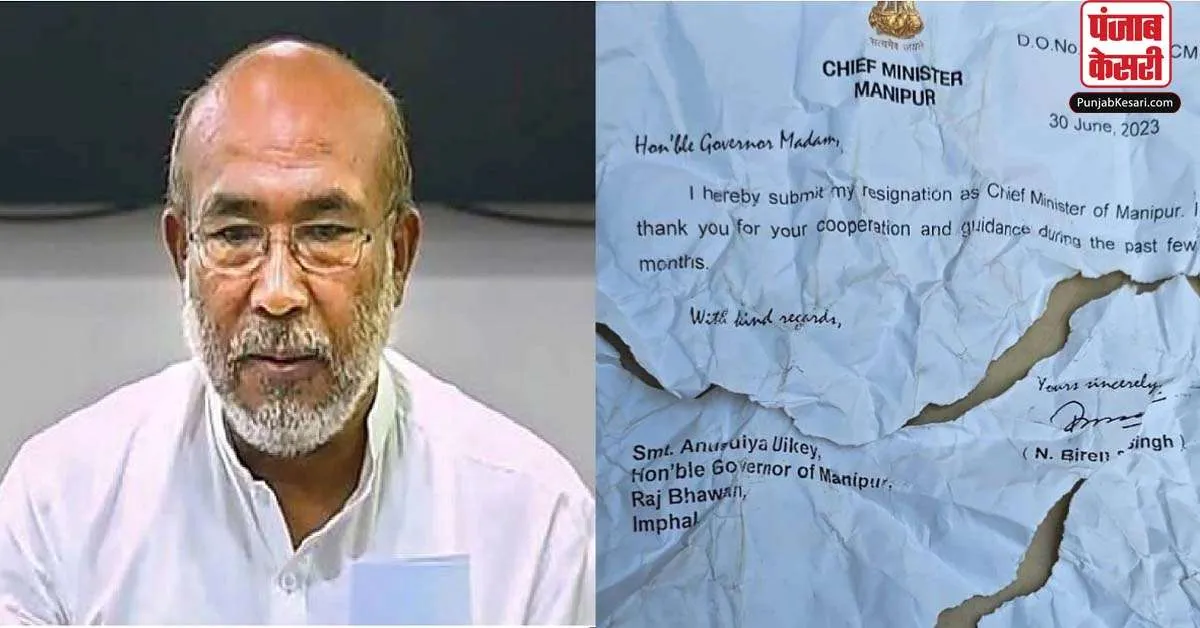 पंजाब
केसरी
PunjabKesari.com
सत्यमेव जयते
D.O.No. CM
CHIEF MINISTER
MANIPUR
30 June, 2023
Hon'ble Governor Madam,
I hereby submit my resignation as Chief Minister of Manipur. I
thank you for your cooperation and guidance during the past few
months.
With kind regards,
Yours sincerely,
( N. Biren Singh )
Smt. Anusuiya Uikey,
Hon'ble Governor of Manipur,
Raj Bhawan,
Imphal